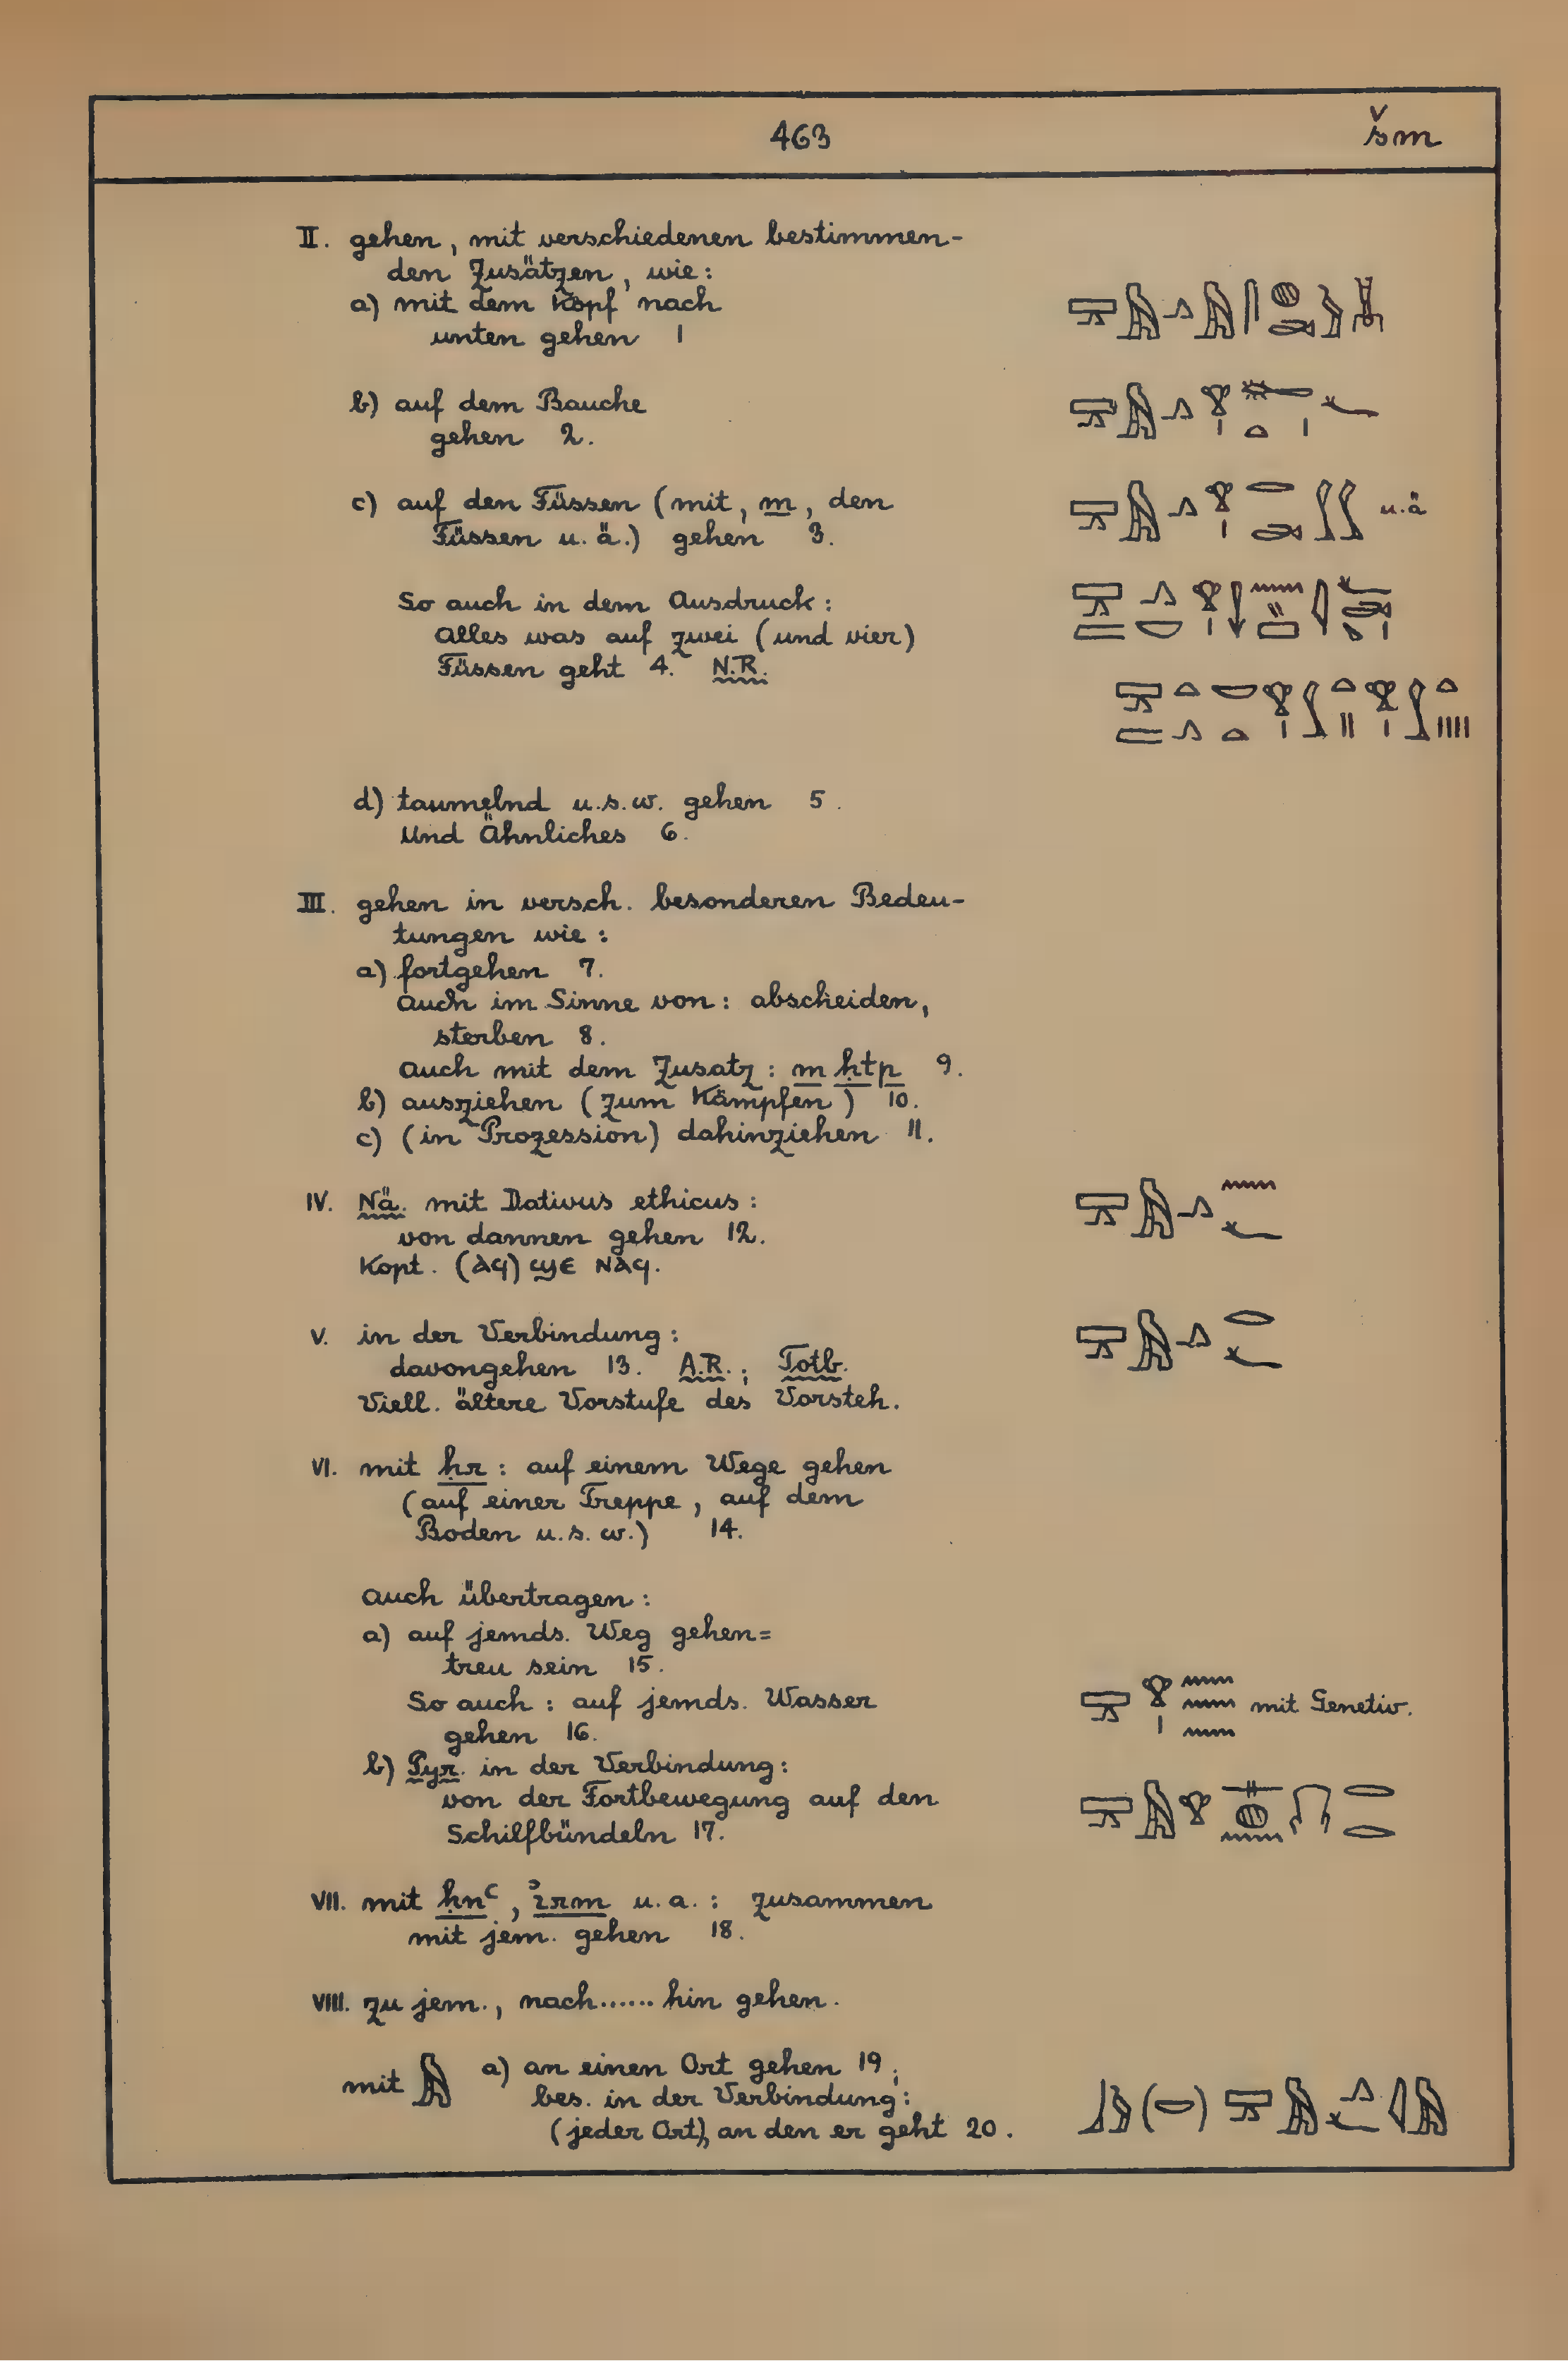 463 šm
II. gehen, mit verschiedenen bestimmen-
den Zusätzen, wie:
a) mit dem Kopf nach
unten gehen 1
b) auf dem Bauche
gehen 2.
c) auf den Füssen (mit, m, den u.ä
Füssen u.ä.) gehen 3.
So auch in dem Ausdruck:
Alles was auf zwei (und vier)
Füssen geht 4. N.R.
d) taumelnd u.s.w. gehen 5.
Und Ähnliches 6.
III. gehen in versch. besonderen Bedeu-
tungen wie:
a) fortgehen 7.
Auch im Sinne von: abscheiden,
sterben 8.
Auch mit dem Zusatz: m ḥtp 9.
b) ausziehen (zum Kämpfen) 10.
c) (in Prozession) dahinziehen 11.
IV. Nä. mit Dativus ethicus:
von dannen gehen 12.
Kopt. (ⲁϥ) ϣⲉ ⲛⲁϥ.
V. in der Verbindung:
davongehen 13. A.R.; Totb.
Viell. ältere Vorstufe des Vorsteh.
VI. mit ḥr: auf einem Wege gehen
(auf einer Treppe, auf dem
Boden u.s.w.) 14.
Auch übertragen:
a) auf jemds. Weg gehen=
treu sein 15.
So auch: auf jemds. Wasser mit Genetiv.
gehen 16.
b) Pyr. in der Verbindung:
von der Fortbewegung auf den
Schilfbündeln 17.
VII. mit ḥnꜥ, ꞽrm u.a.: zusammen
mit jem. gehen 18.
VIII. zu jem., nach...... hin gehen.
mit 𓅓 a) an einen Ort gehen 19;
bes. in der Verbindung:
(jeder Ort), an den er geht 20.